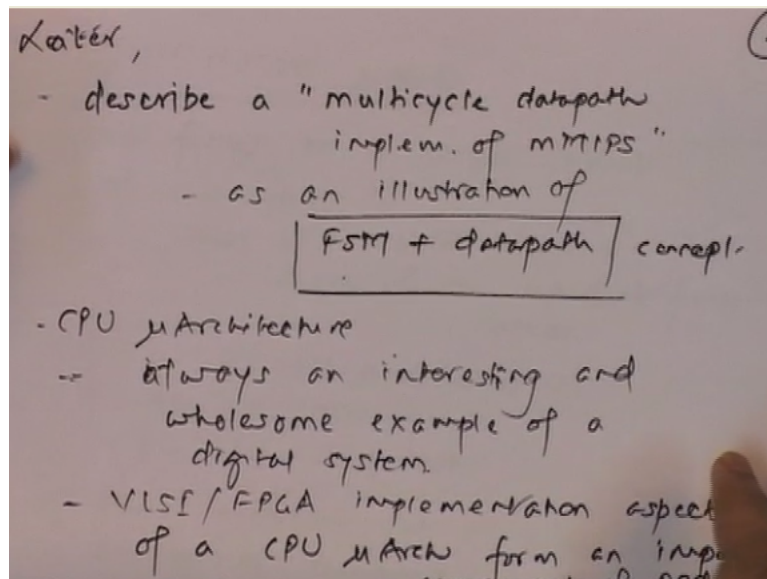 Later,
- describe a "multicycle datapath
implem. of mMIPS"
- as an illustration of
FSM + datapath concept.
- CPU μArchitecture
- always an interesting and
wholesome example of a
digital system.
- VLSI/FPGA implementation aspect
of a CPU μArch form an impo